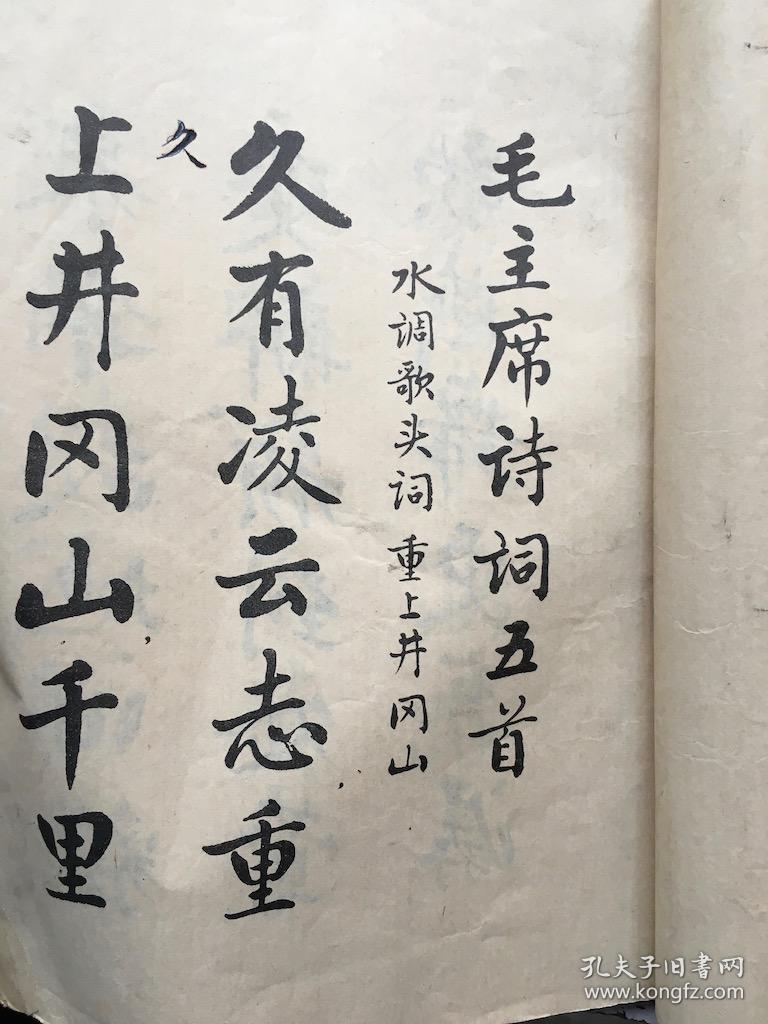 毛主席诗词五首
水调歌头词 重上井冈山
久有凌云志重
久
上井冈山千里
孔夫子旧书网
www.kongfz.com